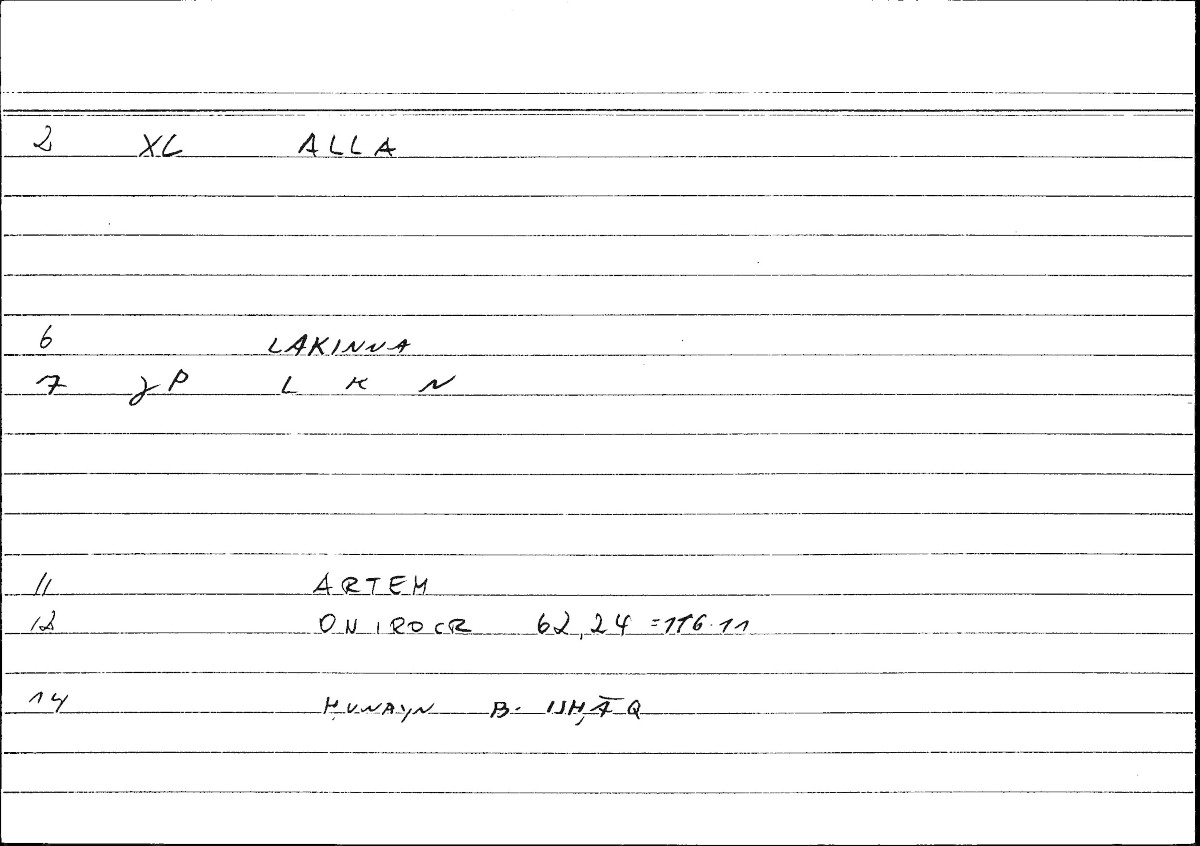 2 XL ALLA
6 LAKINNA
7 P L K N
11 ARTEM
12 ONIROCR 62,24 =116.11
14 ḤUNAYN B. ISḤĀQ